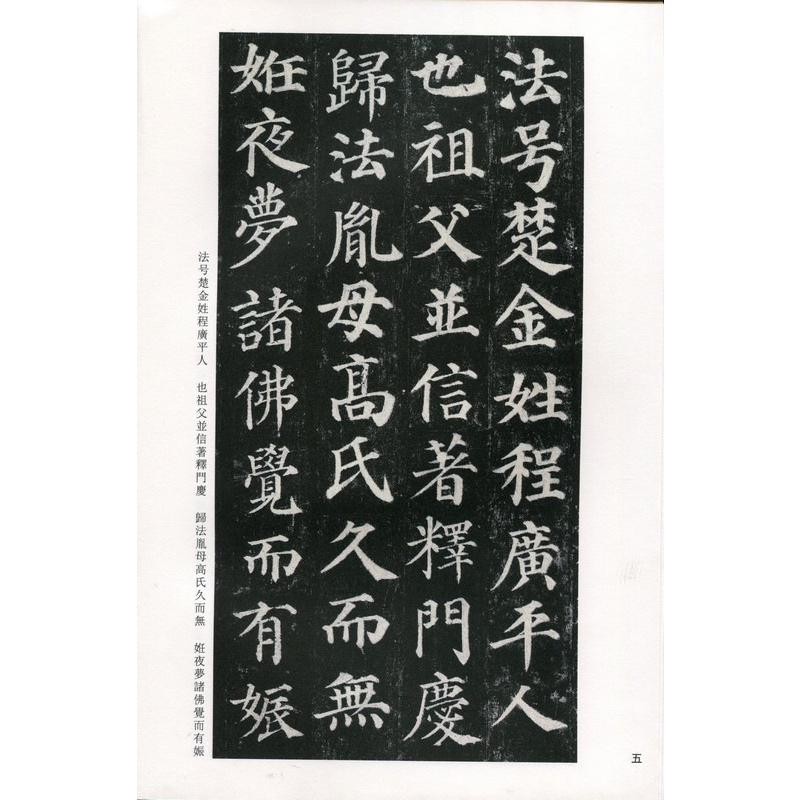 法号楚金姓程廣平人
也祖父並信著釋門慶
歸法胤母高氏久而無
姙夜夢諸佛覺而有娠
法号楚金姓程廣平人 也祖父並信著釋門慶 歸法胤母高氏久而無 姙夜夢諸佛覺而有娠
五